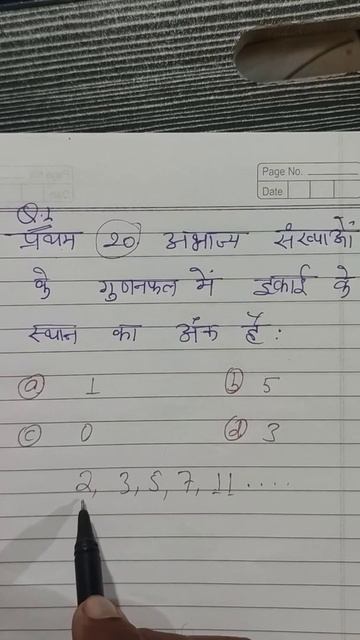 Page No.
Date
Q.1
प्रथम 20 अभाज्य संख्याओं
के गुणनफल में इकाई के
स्थान का अंक है :
(a) 1 (b) 5
(c) 0 (d) 3
2, 3, 5, 7, 11 .....